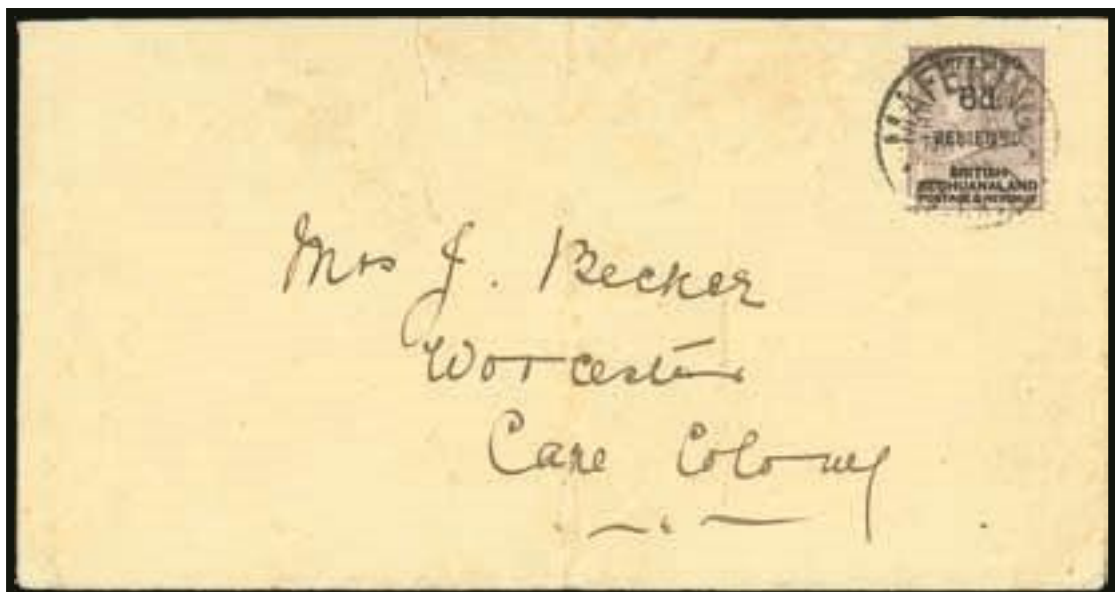 MAFEKING
6d
BESIEGED
BRITISH
BECHUANALAND
POSTAGE & REVENUE
Mrs J. Becker
Worcester
Cape Colony